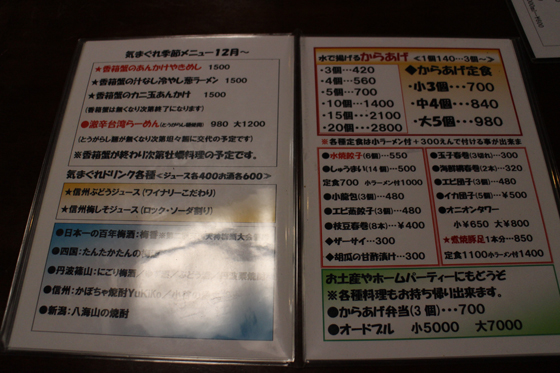 気まぐれ季節メニュー12月～
★香箱蟹のあんかけやきめし 1500
★香箱蟹の汁なし冷やし薬ラーメン 1500
★香箱蟹のカニ玉あんかけ 1500
(香箱蟹は無くなり次第終了になります)
●激辛台湾らーめん 980 大1200
(とうがらし麺が無くなり次第坦々麺に交代の予定です)
※香箱蟹が終わり次第牡蠣料理の予定です。
気まぐれドリンク各種<ジュース各400お酒各600>
★信州ぶどうジュース (ワイナリーこだわり)
★信州梅しそジュース (ロック・ソーダ割り)
●日本一の百年梅酒:
●四国:たんたかたんの
●丹波篠山:にごり梅酒
●信州:かぼちゃ焼酎
●新潟:八海山の焼酎
水で揚げるからあげ <1個140…3個～>
・3個…420
・4個…560
・5個…700
・10個…1400
・15個…2100
・20個…2800
◆からあげ定食
小3個…700
中4個…840
大5個…980
※各種定食は小ラーメン付+300えんで付ける事が出来ま
●水焼餃子(6個)…550
●しゅうまい(14個)…500
定食700 小ラーメン付1000
◆小籠包(3個)…480
◆エビ蒸餃子(3個)…480
◆枝豆春巻(8本)…¥400
◆ザーサイ…300
◆胡瓜の甘酢漬け…300
●玉子春巻(3切れ)…300
●海鮮湯葉春巻(2本)…320
●エビ団子(3個)…480
●イカ団子(5個)…¥500
●オニオンタワー
小¥650 大¥800
★煮焼豚足1本分…850
定食1100小ラーメン付1400
お土産やホームパーティーにもどうぞ
※各種料理もお持ち帰り出来ます。
●からあげ弁当(3個)…700
●オードブル 小5000 大7000